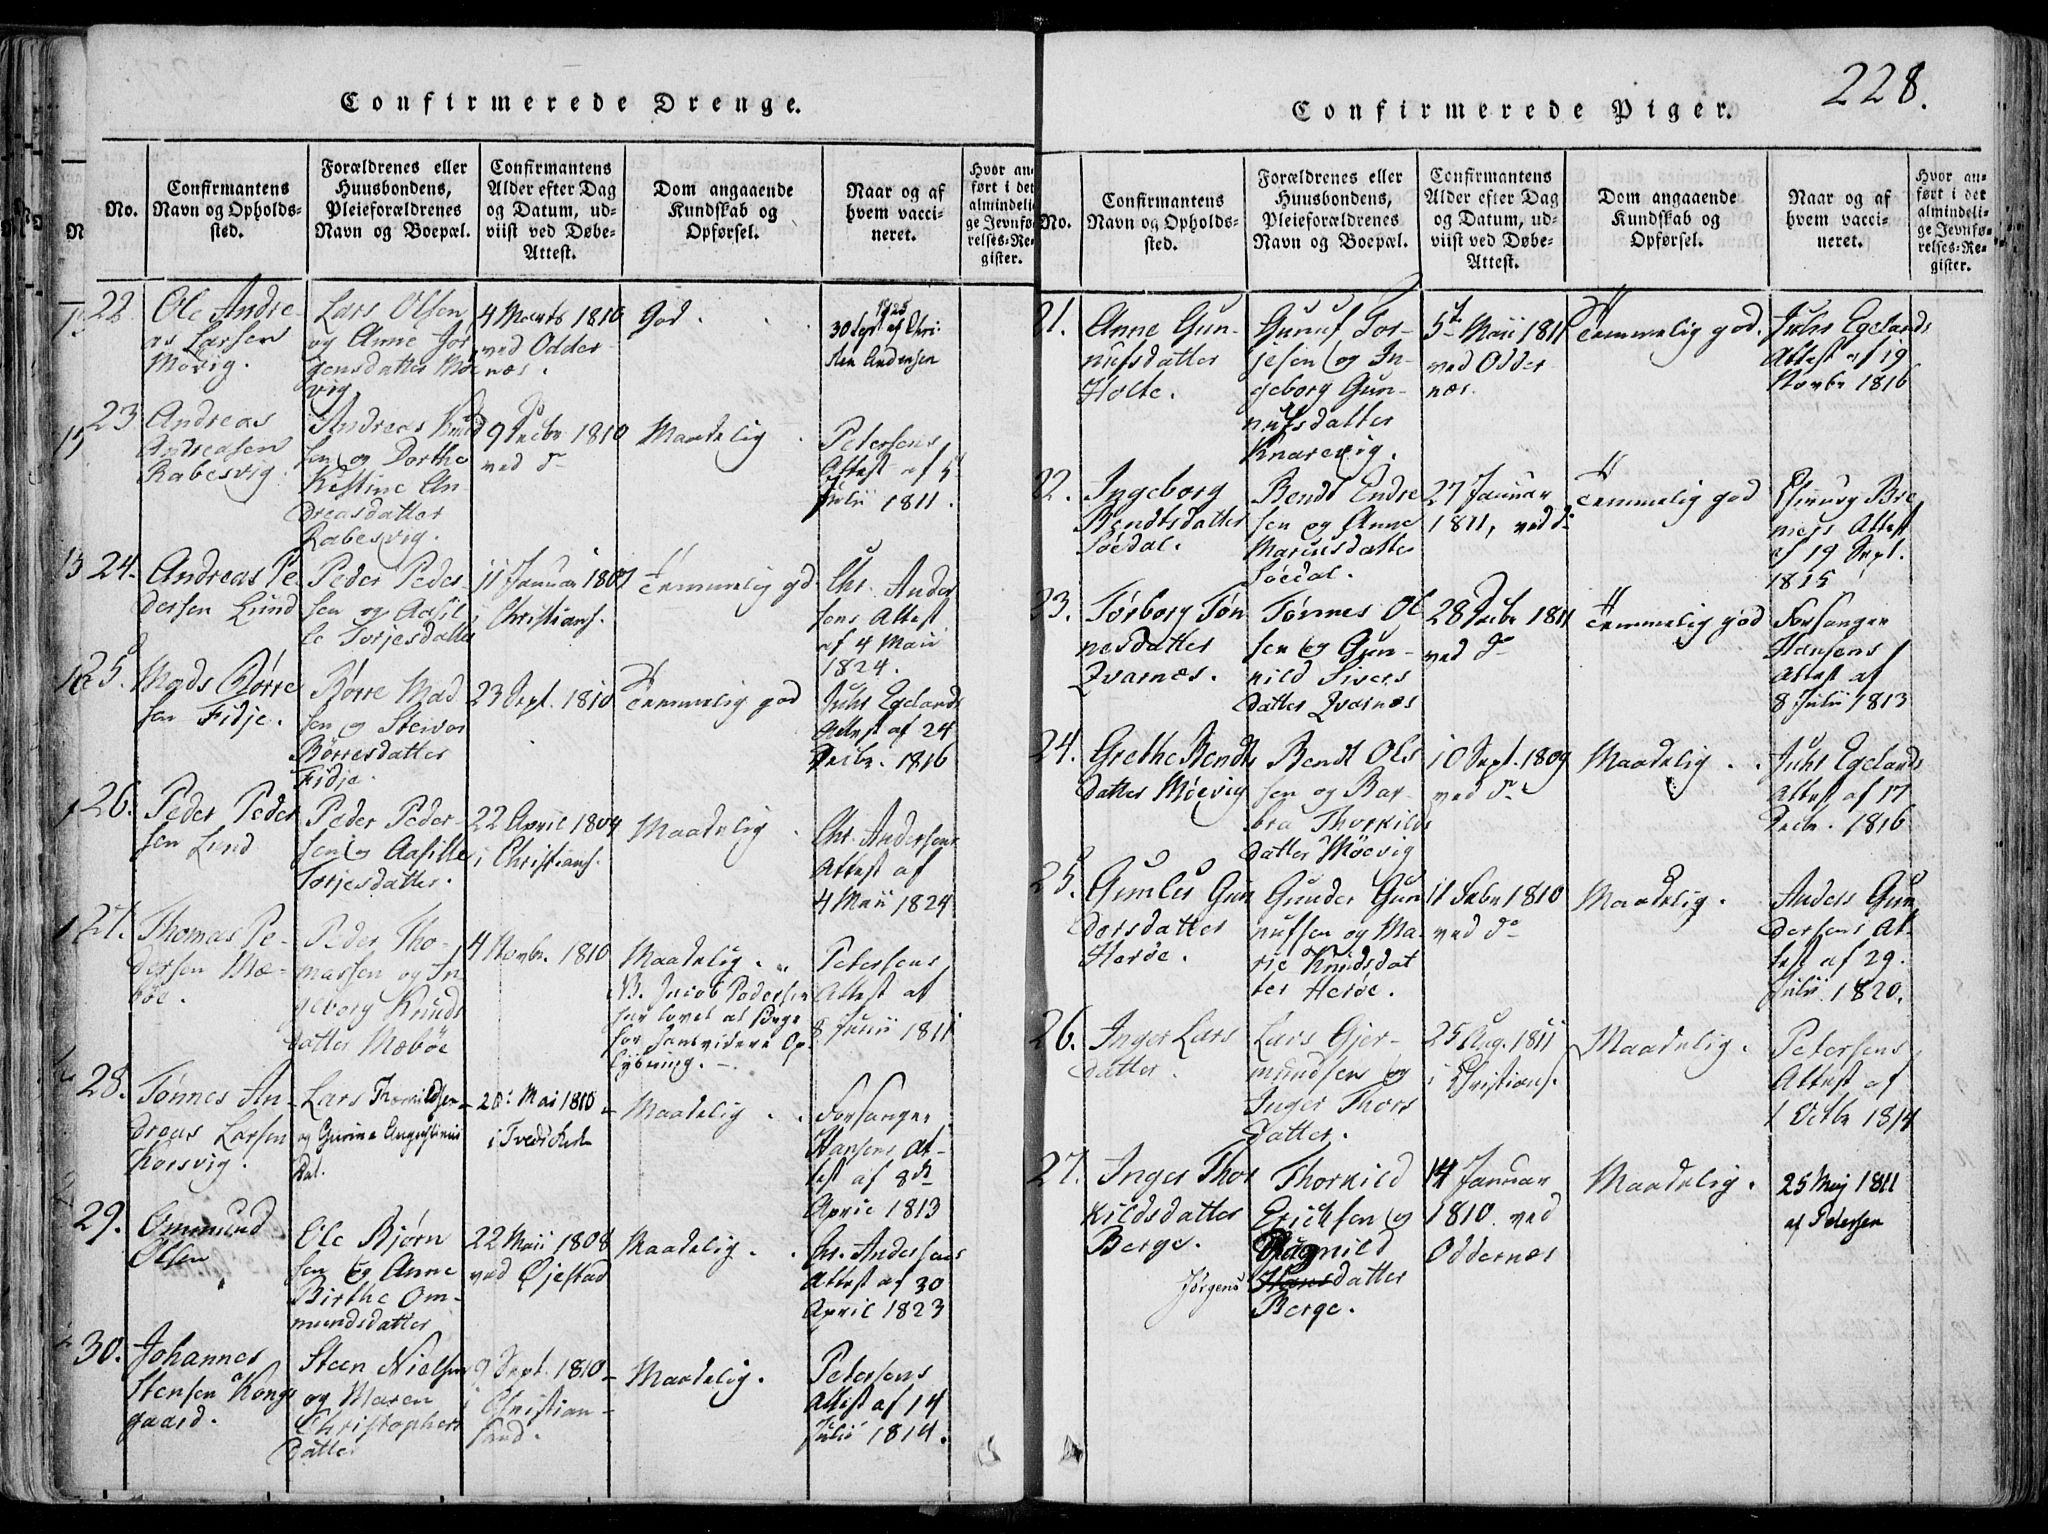 228.
Confirmerede Drenge.
No.
Confirmantens
Navn og Opholds-
sted.
Forældrenes eller
Huusbondens,
Pleieforældrenes
Navn og Boepæl.
Confirmantens
Alder efter Dag
og Datum, ud-
viist ved Døbe-
Attest.
Dom angaaende
Kundskab og
Opførsel.
Naar og af
hvem vacci-
neret.
Hvor an-
ført i det
almindeli-
ge Jevnfø-
relses-Re-
gister.
22
Ole Andre-
as Larsen
Møvig.
Lars Olsen
og Anne Jør
gensdatter Mø
vig
4 Marts 1810
ved Odder-
næs.
God.
30 Sept af Chri
sten Andersen
23
Andreas
Andreasen
Rabesvig.
Andreas Knud
sen og Dorthe
Kestine An
dreasdatter
Rabesvig.
9 Decbr 1810
ved do
Maadelig
Petersens
Attest af 5
Julii 1811.
24.
Andreas Pe-
dersen Lund
Peder Peder
sen og Aasil
le Torjesdatter
11 Januar 1807
i Christians.
Temmelig gd.
Chr. Ander
sens Attest
af 4 Maii
1824.
25.
Mads Børre
sen Fidje.
Børre Mad
sen og Steivor
Børresdatter
Fidje.
23 Sept. 1810
Temmelig god
Juhr Egelands
Attest af 24
Decbr. 1816
26.
Peder Peder
sen Lund
Peder Peder-
sen og Aasille
Torjesdatter.
22 April 1804
i Christians.
Maadelig
Chr. Andersens
Attest af
4 Maii 1824
27.
Thomas Pe-
dersen Mæ-
bøe.
Peder Tho-
massen og In
geborg Knuds
datter Mæbøe
4 Novbr. 1810
Maadelig.
NB. Jacob Pedersen
har lovet at sørge
for hans videre Op-
lysning.
Petersens
Attest af
8 Junii 1811
28.
Tønnes An-
dreas Larsen
Korsvig.
Lars Thorkildsen
og Gurine Augustinus
dat.
20 Mai 1810
i Tvedt Kirke
Maadelig
Forsanger
Hansens At-
test af 8de
April 1813
29.
Ommund
Olsen
Ole Bjørn
sen og Anne
Birthe Om-
mundsdatter
22 Maii 1808
ved Øjestad
Maadelig.
Chr. Andersens
Attest af 30
April 1823
30.
Johannes
Stensen Kongs
gaard.
Steen Nielsen
og Maren
Christophers
datter
9 Sept. 1810
i Christian-
sand.
Maadelig.
Petersens
Attest af 14
Julii 1814.
Confirmerede Piger.
No.
Confirmantens
Navn og Opholds-
sted.
Forældrenes eller
Huusbondens,
Pleieforældrenes
Navn og Boepæl.
Confirmantens
Alder efter Dag
og Datum, ud-
viist ved Døbe-
Attest.
Dom angaaende
Kundskab og
Opførsel.
Naar og af
hvem vacci-
neret.
Hvor an-
ført i det
almindeli-
ge Jevnfø-
relses-Re-
gister.
21.
Anne Gun-
nufsdatter
Holte.
Gunuf Tor-
jesen og In-
geborg Gun-
nufsdatter
Knarevig.
5te Maii 1811
ved Odder
næs.
Temmelig god.
Juhr Egelands
Attest af 19
Novbr 1816
22.
Ingeborg
Bendtsdatter
Søedal.
Bendt Endre
sen og Anne
Mariusdatter
Søedal.
27 Januar
1811, ved do
Temmelig god
Attest
af 19 Sept.
1815
23.
Torborg Tøn
nesdatter
Qvarnæs.
Tønnes Ol
sen og Gun-
nild Sivers
datter Qvarnæs
28 Decbr 1811
ved do
Temmelig god
Forsanger
Hansens
Attest af
8 Julii 1813
24.
Grethe Bendts
datter Møevig
Bendt Ols
sen og Bar-
bra Thorkilds
datter Møevig
10 Sept. 1809
ved do
Maadelig.
Juhr Egelands
Attest af 17
Decbr. 1816
25.
Gunlu Gun
dersdatter
Herøe.
Gunder Gun
nufsen og Ma-
rie Knudsdat
ter Herøe.
11 Febr 1810
ved do
Maadelig.
Anders Gun
dersens At-
test af 29.
Julii 1820.
26.
Inger Lars
datter.
Lars Gjer-
mundsen og
Inger Thors
datter.
25 Aug. 1811
i Christians.
Maadelig.
Petersens
Attest af
1 Octbr 1814
27.
Inger Thor
kildsdatter
Berge.
Thorkild
Erichsen og
Ragnild
Jørgens Hansdatter
Berge.
14 Januar
1810 ved
Oddernæs
Maadelig.
25 Maj 1811
af Petersen